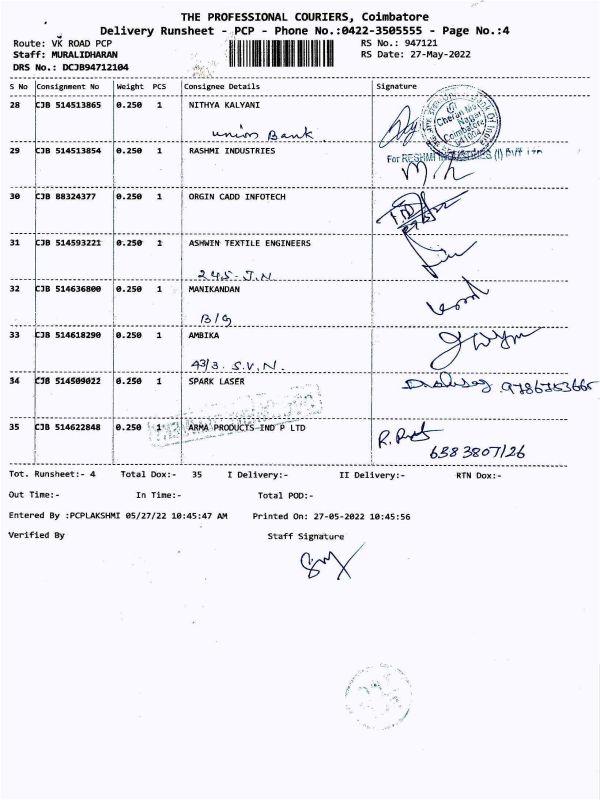 THE PROFESSIONAL COURIERS, Coimbatore
Delivery Runsheet - PCP - Phone No.:0422-3505555 - Page No.:4
Route: VK ROAD PCP RS No.: 947121
Staff: MURALIDHARAN RS Date: 27-May-2022
DRS No.: DCJB94712104
S No Consignment No Weight PCS Consignee Details Signature
28 CJB 514513865 0.250 1 NITHYA KALYANI
union Bank
29 CJB 514513854 0.250 1 RASHMI INDUSTRIES
For RESHMI INDUSTRIES (I)
30 CJB 88324377 0.250 1 ORGIN CADD INFOTECH
31 CJB 514593221 0.250 1 ASHWIN TEXTILE ENGINEERS
245-J.N
32 CJB 514636800 0.250 1 MANIKANDAN
B/G
33 CJB 514618290 0.250 1 AMBIKA
43/3. S.V.N.
34 CJB 514509022 0.250 1 SPARK LASER
35 CJB 514622848 0.250 1 ARMA PRODUCTS IND P LTD
6383807126
Tot. Runsheet:- 4 Total Dox:- 35 I Delivery:- II Delivery:- RTN Dox:-
Out Time:- In Time:- Total POD:-
Entered By :PCPLAKSHMI 05/27/22 10:45:47 AM Printed On: 27-05-2022 10:45:56
Verified By Staff Signature